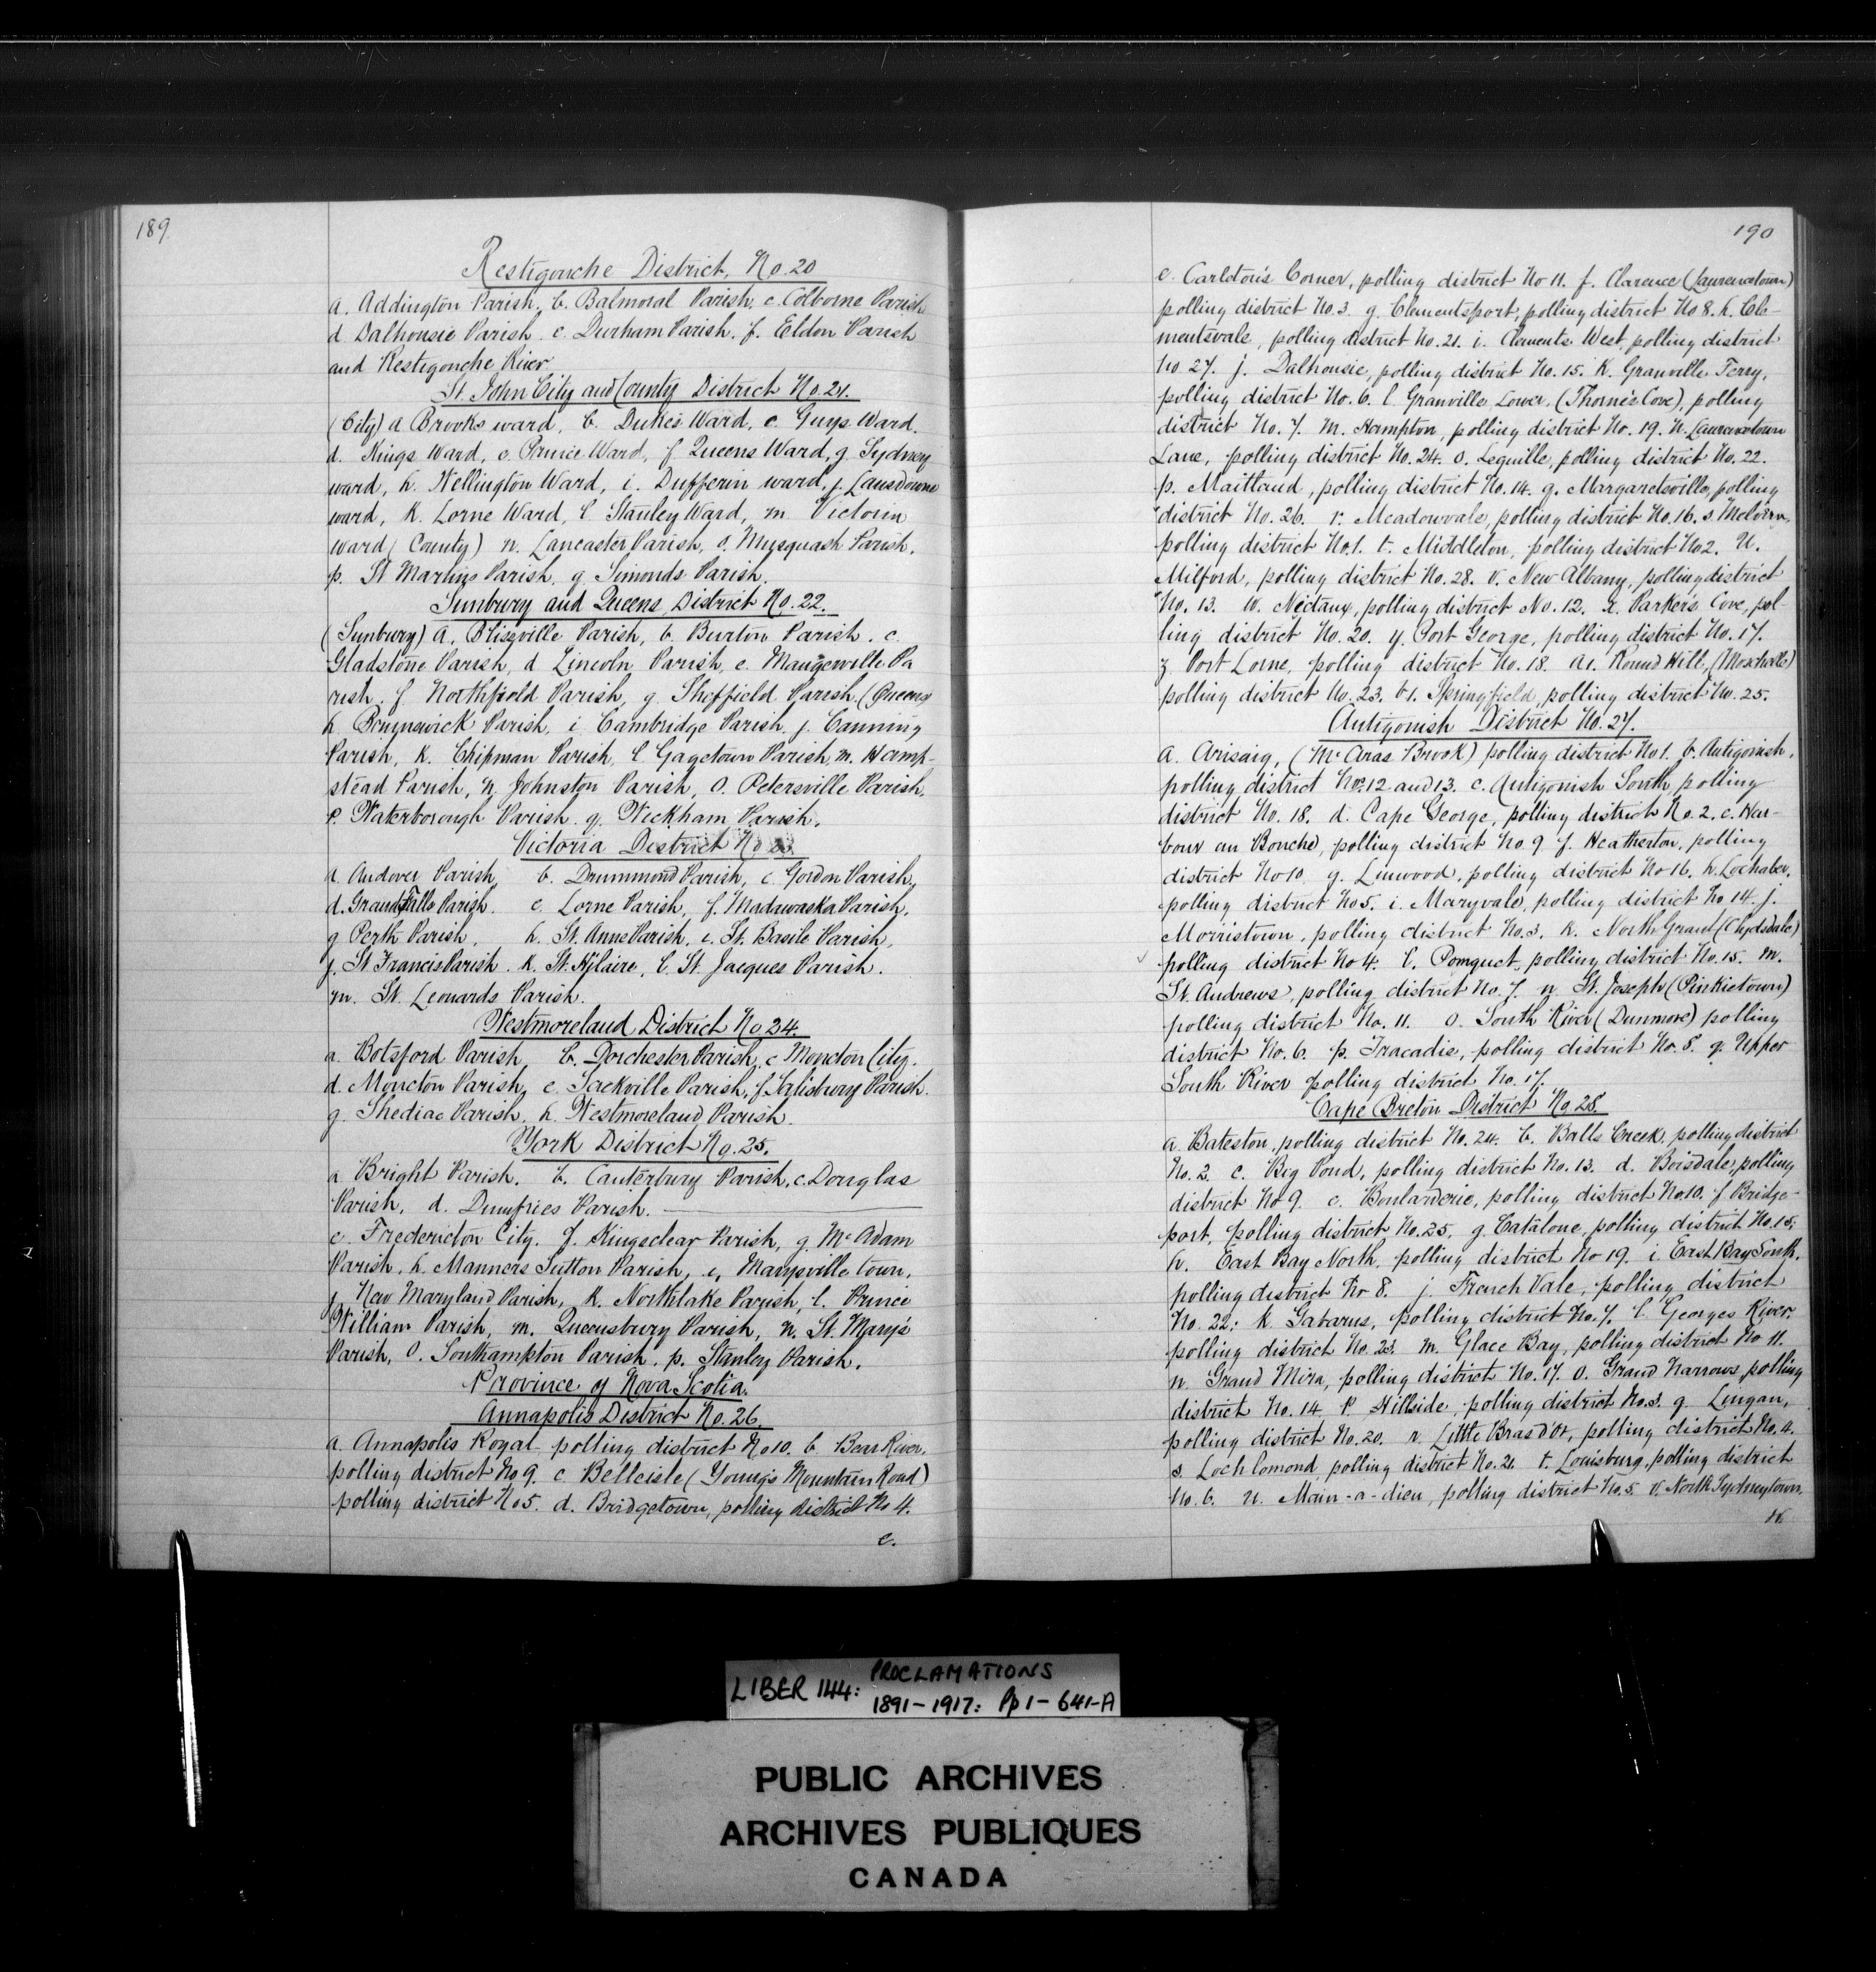 189
Restigouche District, No. 20
a. Addington Parish, b. Balmoral Parish, c. Colborne Parish
d Dalhousie Parish. e. Durham Parish. f. Eldon Parish
and Restigouche River.
St. John City and County District No. 21.
(City) a Brooks ward, b. Dukes Ward, c. Guys Ward.
d. Kings Ward, e. Prince Ward, f Queens Ward, g. Sydney
ward, h. Wellington Ward, i. Dufferin ward, j. Lansdowne
ward, k. Lorne Ward, l Stanley Ward, m Victoria
Ward (County) n. Lancaster Parish, o. Musquash Parish.
p. St Martins Parish. q. Simonds Parish.
Sunbury and Queens District No. 22.
(Sunbury) a. Blissville Parish, b. Burton Parish. c.
Gladstone Parish, d Lincoln Parish, e. Maugerville Pa
rish. f Northfield Parish, g. Sheffield Parish, (Queens
h Brunswick Parish, i Cambridge Parish, j. Canning
Parish, k. Chipman Parish, l. Gagetown Parish, m. Hamp-
stead Parish, n. Johnston Parish, o. Petersville Parish.
p. Waterborough Parish. q. Wickham Parish.
Victoria District No 23.
a. Andover Parish b. Drummond Parish, c Gordon Parish,
d. Grand Falls Parish. e. Lorne Parish, f. Madawaska Parish.
g Perth Parish, h. St. Anne Parish. i. St. Basile Parish,
j. St Francis Parish. k. St. Hilaire, l. St. Jacques Parish.
m. St. Leonards Parish.
Westmoreland District No. 24.
a. Botsford Parish, b. Dorchester Parish, c Moncton City.
d. Moncton Parish, e. Sackville Parish, f. Salisbury Parish.
g. Shediac Parish, h. Westmoreland Parish.
York District No. 25.
a Bright Parish. b. Canterbury Parish, c. Douglas
Parish, d. Dumfries Parish.
e. Fredericton City. f. Kingsclear Parish, g. McAdam
Parish. h. Manners Sutton Parish, i, Marysville town,
j. New Maryland Parish, k. Northlake Parish, l. Prince
William Parish, m. Queensbury Parish, n. St. Mary's
Parish, o. Southampton Parish. p. Stanley Parish.
Province of Nova Scotia.
Annapolis District No. 26.
a. Annapolis Royal polling district No 10. b. Bear River,
polling district No 9. c Belleisle (Young's Mountain Road)
polling district No 5. d. Bridgetown, polling district No 4.
e.
190
e. Carleton's Corner, polling district No 11. f. Clarence (Laurencetown)
polling district No. 3. g. Clementsport, polling district No 8. h. Cle-
mentsvale, polling district No. 21. i. Clements West, polling district
No. 27. j. Dalhousie, polling district No. 15. k. Granville Ferry,
polling district No. 6. l. Granville Lower, (Thorne's Cove), polling
district No. 7. m. Hampton, polling district No. 19. n. Laurencetown
Lane, polling district No. 24. o. Lequille, polling district No. 22.
p. Maitland, polling district No. 14. q. Margaretsville, polling
district No. 26. r. Meadowvale, polling district No. 16. s Melvern,
polling district No. 1. t. Middleton, polling district No 2. u.
Milford, polling district No. 28. v. New Albany, polling district
No. 13. w. Nictaux, polling district No. 12. x. Parker's Cove, pol-
ling district No. 20. y. Port George, polling district No. 17.
z Port Lorne, polling district No. 18. a1. Round Hill, (Moschelle)
polling district No. 23. b1. Springfield, polling district No. 25.
Antigonish District No. 27.
a. Arisaig, (McAras Brook) polling district No 1. b. Antigonish,
polling district Nos. 12 and 13. c. Antigonish South polling
district No. 18. d. Cape George, polling district No. 2. e. Har-
bour au Bouche, polling district No. 9 f. Heatherton, polling
district No 10. g. Linwood, polling district No 16. h. Lochaber,
polling district No 5. i. Maryvale, polling district No 14. j.
Morristown, polling district No. 3. k. North Grant (Clydsdale)
polling district No 4. l. Pomquet, polling district No. 15. m.
St. Andrews, polling district No. 7. n St. Joseph (Pinkietown)
polling district No. 11. o. South River (Dunmore) polling
district No. 6. p. Tracadie, polling district No. 8. q. Upper
South River polling district No. 17.
Cape Breton District No 28.
a. Bateston, polling district No. 24. b. Balls Creek, polling district
No. 2. c. Big Pond, polling district No. 13. d. Boisdale, polling
district No 9. e. Boularderie, polling district No. 10. f Bridge-
port, polling district No. 25, g Catalone, polling district No. 15,
h. East Bay North, polling district No 19. i. East Bay South,
polling district No 8. j. French Vale, polling district
No. 22: k. Gabarus, polling district No. 7. l. Georges River,
polling district No. 23. m. Glace Bay, polling district No 11.
n. Grand Mira, polling district No. 17. o. Grand Narrows, polling
district No. 14 p. Hillside polling district No. 3. q. Lingan,
polling district No. 20. r. Little Bras d'Or, polling district No. 4.
s. Loch Lomond, polling district No. 21. t. Louisburg, polling district
No. 6. u. Main-a-dieu, polling district No. 5. v. North Sydney town.
w
LIBER 144: PROCLAMATIONS
1891-1917: Pp 1-641-A
PUBLIC ARCHIVES
ARCHIVES PUBLIQUES
CANADA